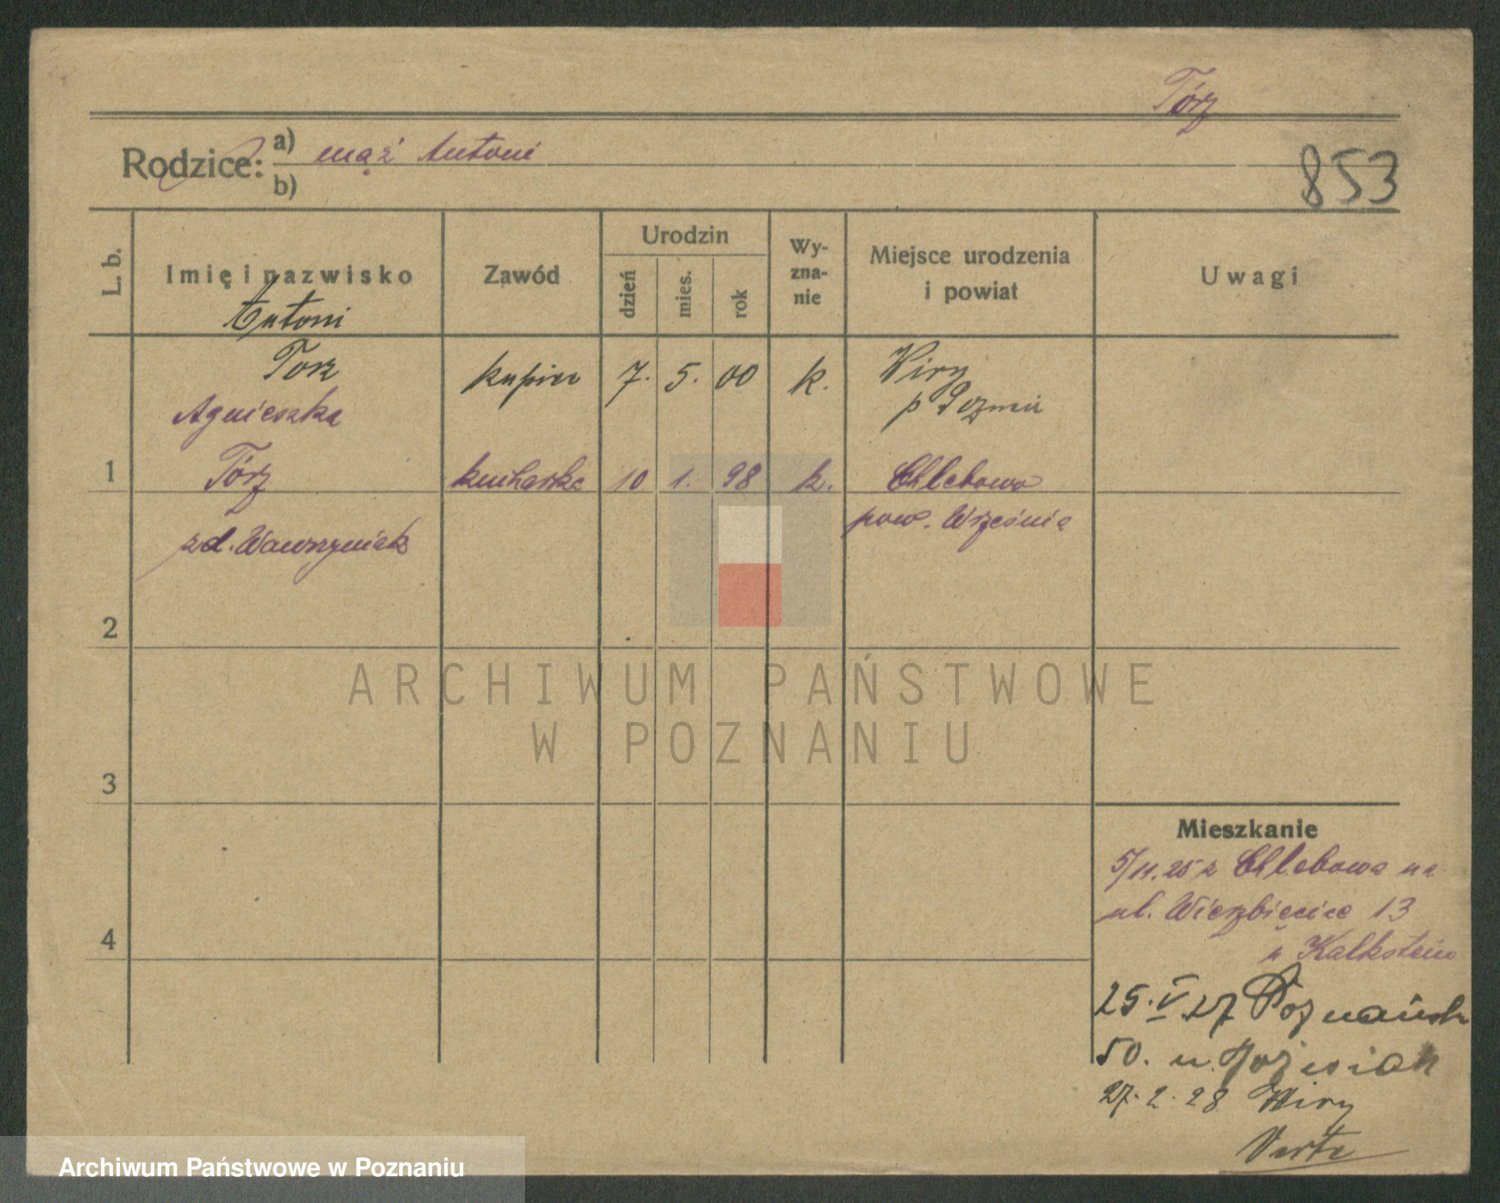 Tórz
Rodzice: a) mąż Antoni
b)
853
L. b.
Imię i nazwisko
Zawód
Urodzin
dzień
mies.
rok
Wy-
zna-
nie
Miejsce urodzenia
i powiat
Uwagi
Antoni
Torz kupiec 7. 5. 00 k. Wiry
p Poznań
Agnieszka
1 Tórz kucharka 10 1. 98 k. Chlebowo
pow. Września
zd. Wawrzyniak
2
3
4
Mieszkanie
5/11.25 z Chlebowa na
ul. Wierzbięcice 13
u Kalkstein
25. V 27 Poznańsk
50. u
27. 2. 28 Wiry
Verte
ARCHIWUM PAŃSTWOWE
W POZNANIU
Archiwum Państwowe w Poznaniu